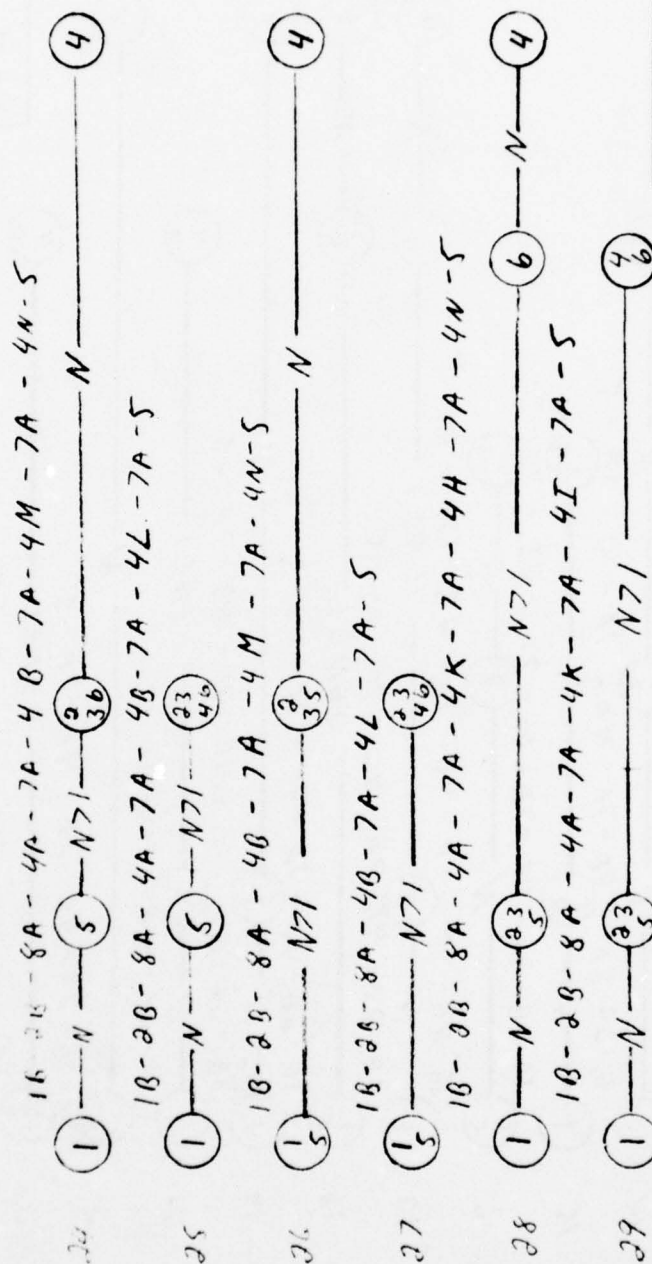 1B-2B-8A-4A-7A-4B-7A-4M-7A-4N-5
24 1 N 5 N>1 2 36 N 4
1B-2B-8A-4A-7A-4B-7A-4L-7A-5
25 1 N 5 N>1 23 46
1B-2B-8A-4B-7A-4M-7A-4N-5
26 1 5 N>1 2 35 N 4
1B-2B-8A-4B-7A-4L-7A-5
27 1 5 N>1 23 46
1B-2B-8A-4A-7A-4K-7A-4H-7A-4N-5
28 1 N 23 5 N>1 6 N 4
1B-2B-8A-4A-7A-4K-7A-4I-7A-5
29 1 N 23 5 N>1 4 6